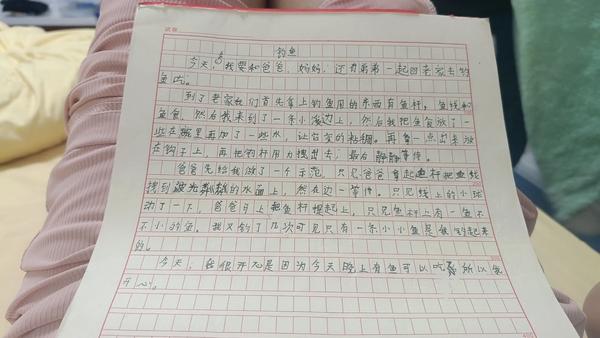 钓鱼
今天,我要和爸爸、妈妈、还有弟弟一起回老家去钓
鱼啦。
到了老家我们首先拿上钓鱼用的东西有鱼杆,鱼线和
鱼食,然后我来到了一条小溪边上,然后我把鱼食放了一
些在碗里再加了一些水,让它变的粘稠。再拿一点出来放
在钩子上,再把钓杆用力摔出去,最后静静等待。
爸爸先给我做了一个示范,只见爸爸拿起鱼杆把鱼线
摔到波光粼粼的水面上,然在边一等待。只见线上的小球
动了一下,爸爸马上把鱼杆提起上,只见鱼杆上有一鱼不
不小的鱼,我又钓了几次可见只有一条小小鱼是被钓起来
的。
今天,我很开心是因为今天晚上有鱼可以吃所以我
开心。